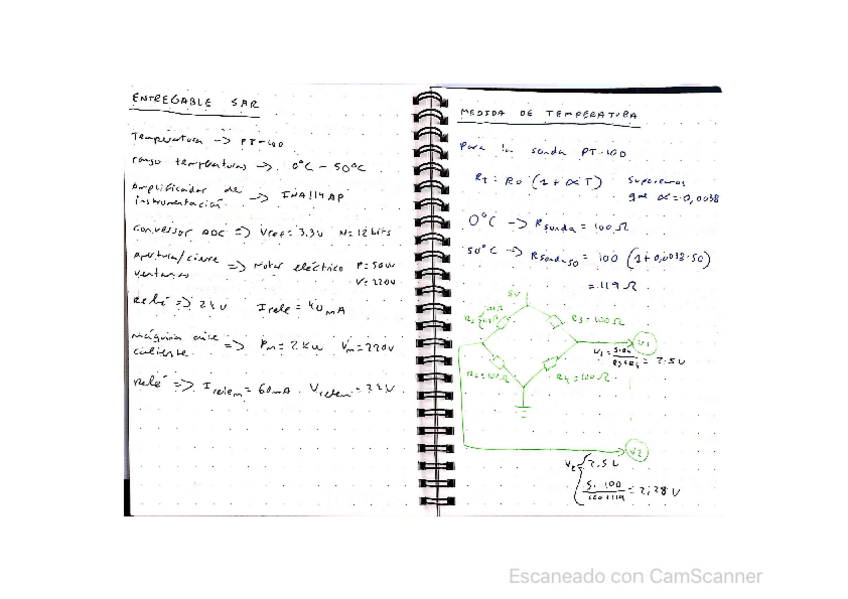 ENTREGABLE SAR
Temperatura -> PT-100
rango temperaturas -> 0°C - 50°C
Amplificador de
instrumentación -> INA114AP
Conversor ADC => Vref = 3.3V N=12 bits
Apertura/cierre
ventanas => Motor eléctrico P=50W
V=220V
Relé => 24V Irele = 40mA
máquina aire
caliente => Pm = 2kW Vm = 220V
Relé => Irelem = 60mA. Vrelem = 24V
MEDIDA DE TEMPERATURA
Para la sonda PT-100
Rt = R0 (1 + αT) Suponemos
que α = 0,0038
0°C -> Rsonda = 100Ω
50°C -> Rsonda50 = 100 (1 + 0,0038·50)
= 119Ω
5V
R3 = 100Ω
V1
= 2.5V
R4 = 100Ω
V2
V2 { 2.5V
5·100 / 100+119 = 2,28V
Escaneado con CamScanner